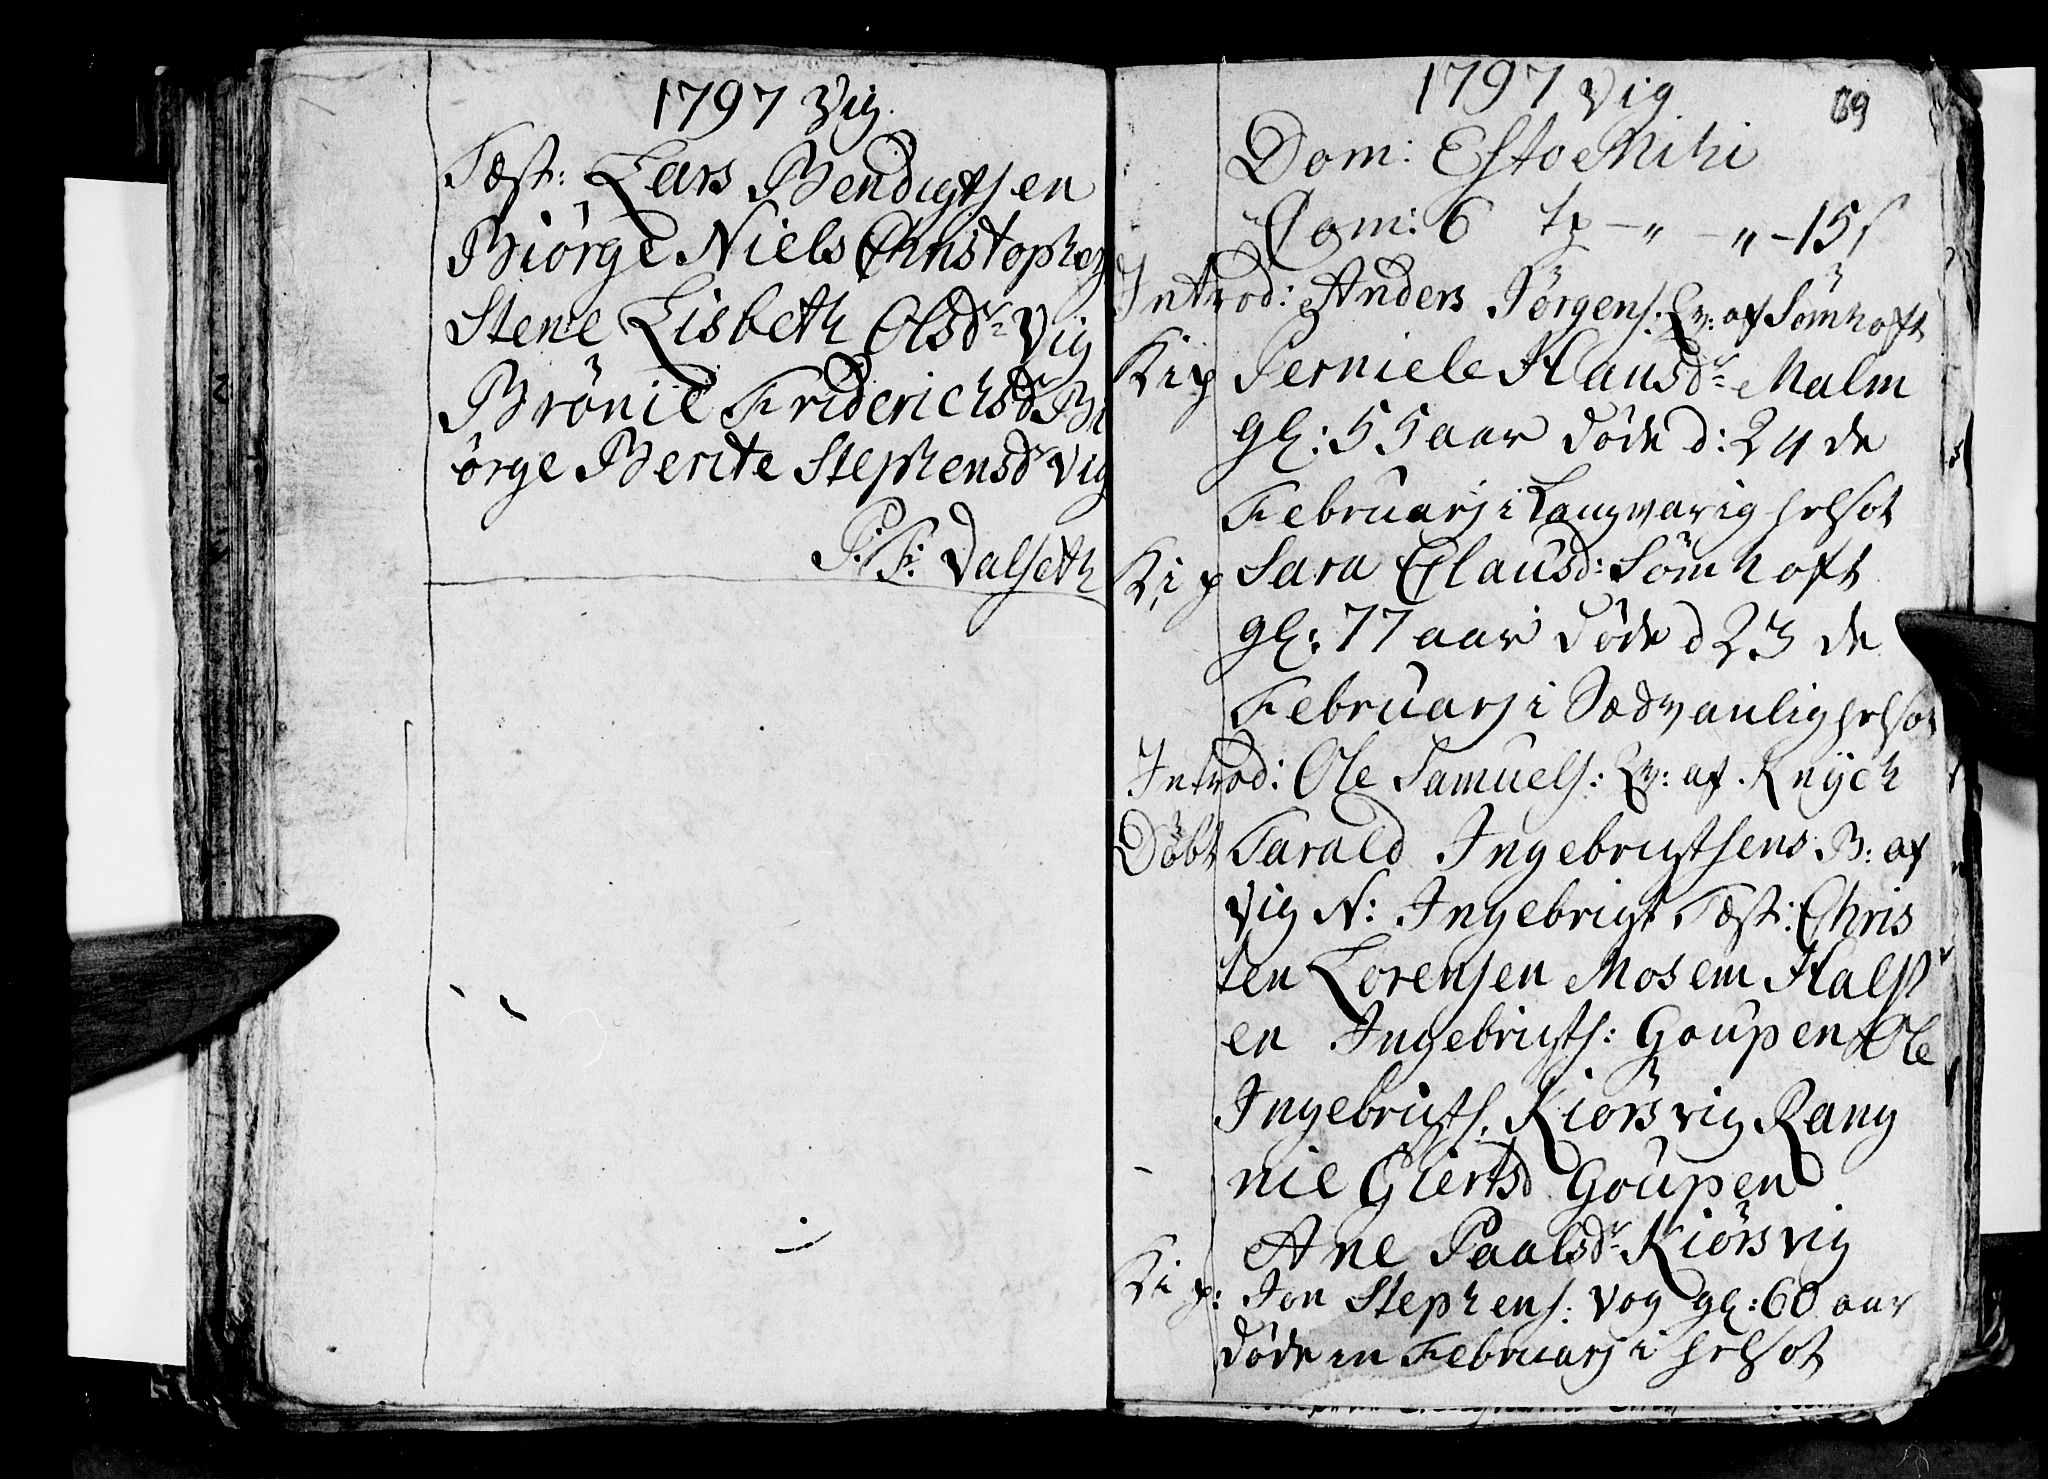 1797 Vig.
Test: Lars Bendigtsen
Biörge Niels Christophers
Stene Lisbeth Olsdr Vig
Brönil Friderichsdr Bi
örge Berite Stephensdr Vig
P: F: Dalseth
1797 Vig
69
Dom: Esto Mihi
Com: 6 tp - " - " - 15 s
Introd: Anders Jörgens: Qv: af Sömhoft
Kip Perniele Hansdr Malm
gl: 55 aar döde d: 24 de
Februarj i Langvarig helsot
Kip Sara Clausd: Sömhoft
gl: 77 aar döde d 23 de
Februarj i Sædvanlig helsot
Introd: Ole Samuels: Qv: af Knÿch
Döbt Tarald Ingebrigtsens B: af
Vig N: Ingebrigt Test: Chris
ten Lorensen Mosem Halst
en Ingebrigts: Goupen Ole
Ingebrigts. Kiörsvig Rang
nil Giertsd Goupen
Ane Paalsdr Kiörsvig
Kip: Jon Stephens. Vog gl: 60 aar
döde in Februarj i helsot